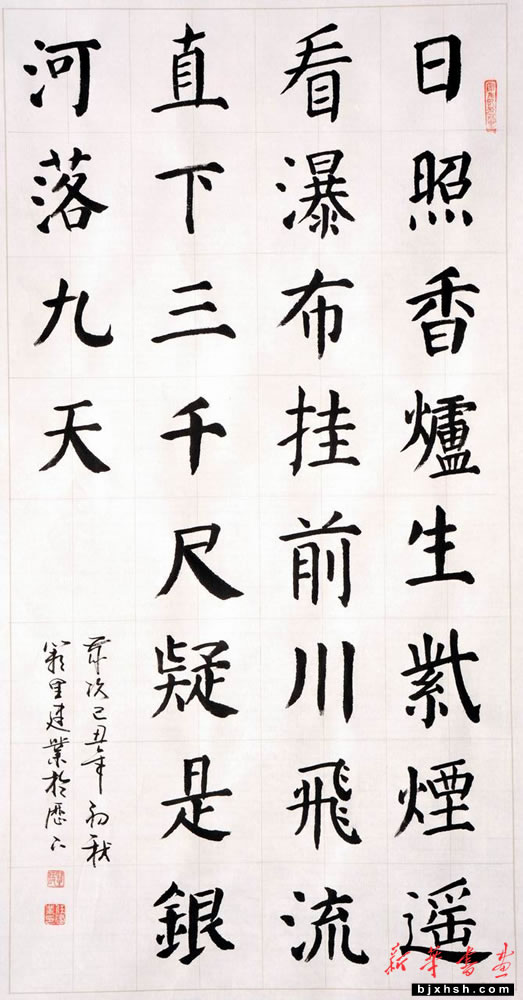 日照香爐生紫煙遥
看瀑布挂前川飛流
直下三千尺疑是銀
河落九天
歲次己丑年初秋
里建業於歷下
新华书画
bjxhsh.com